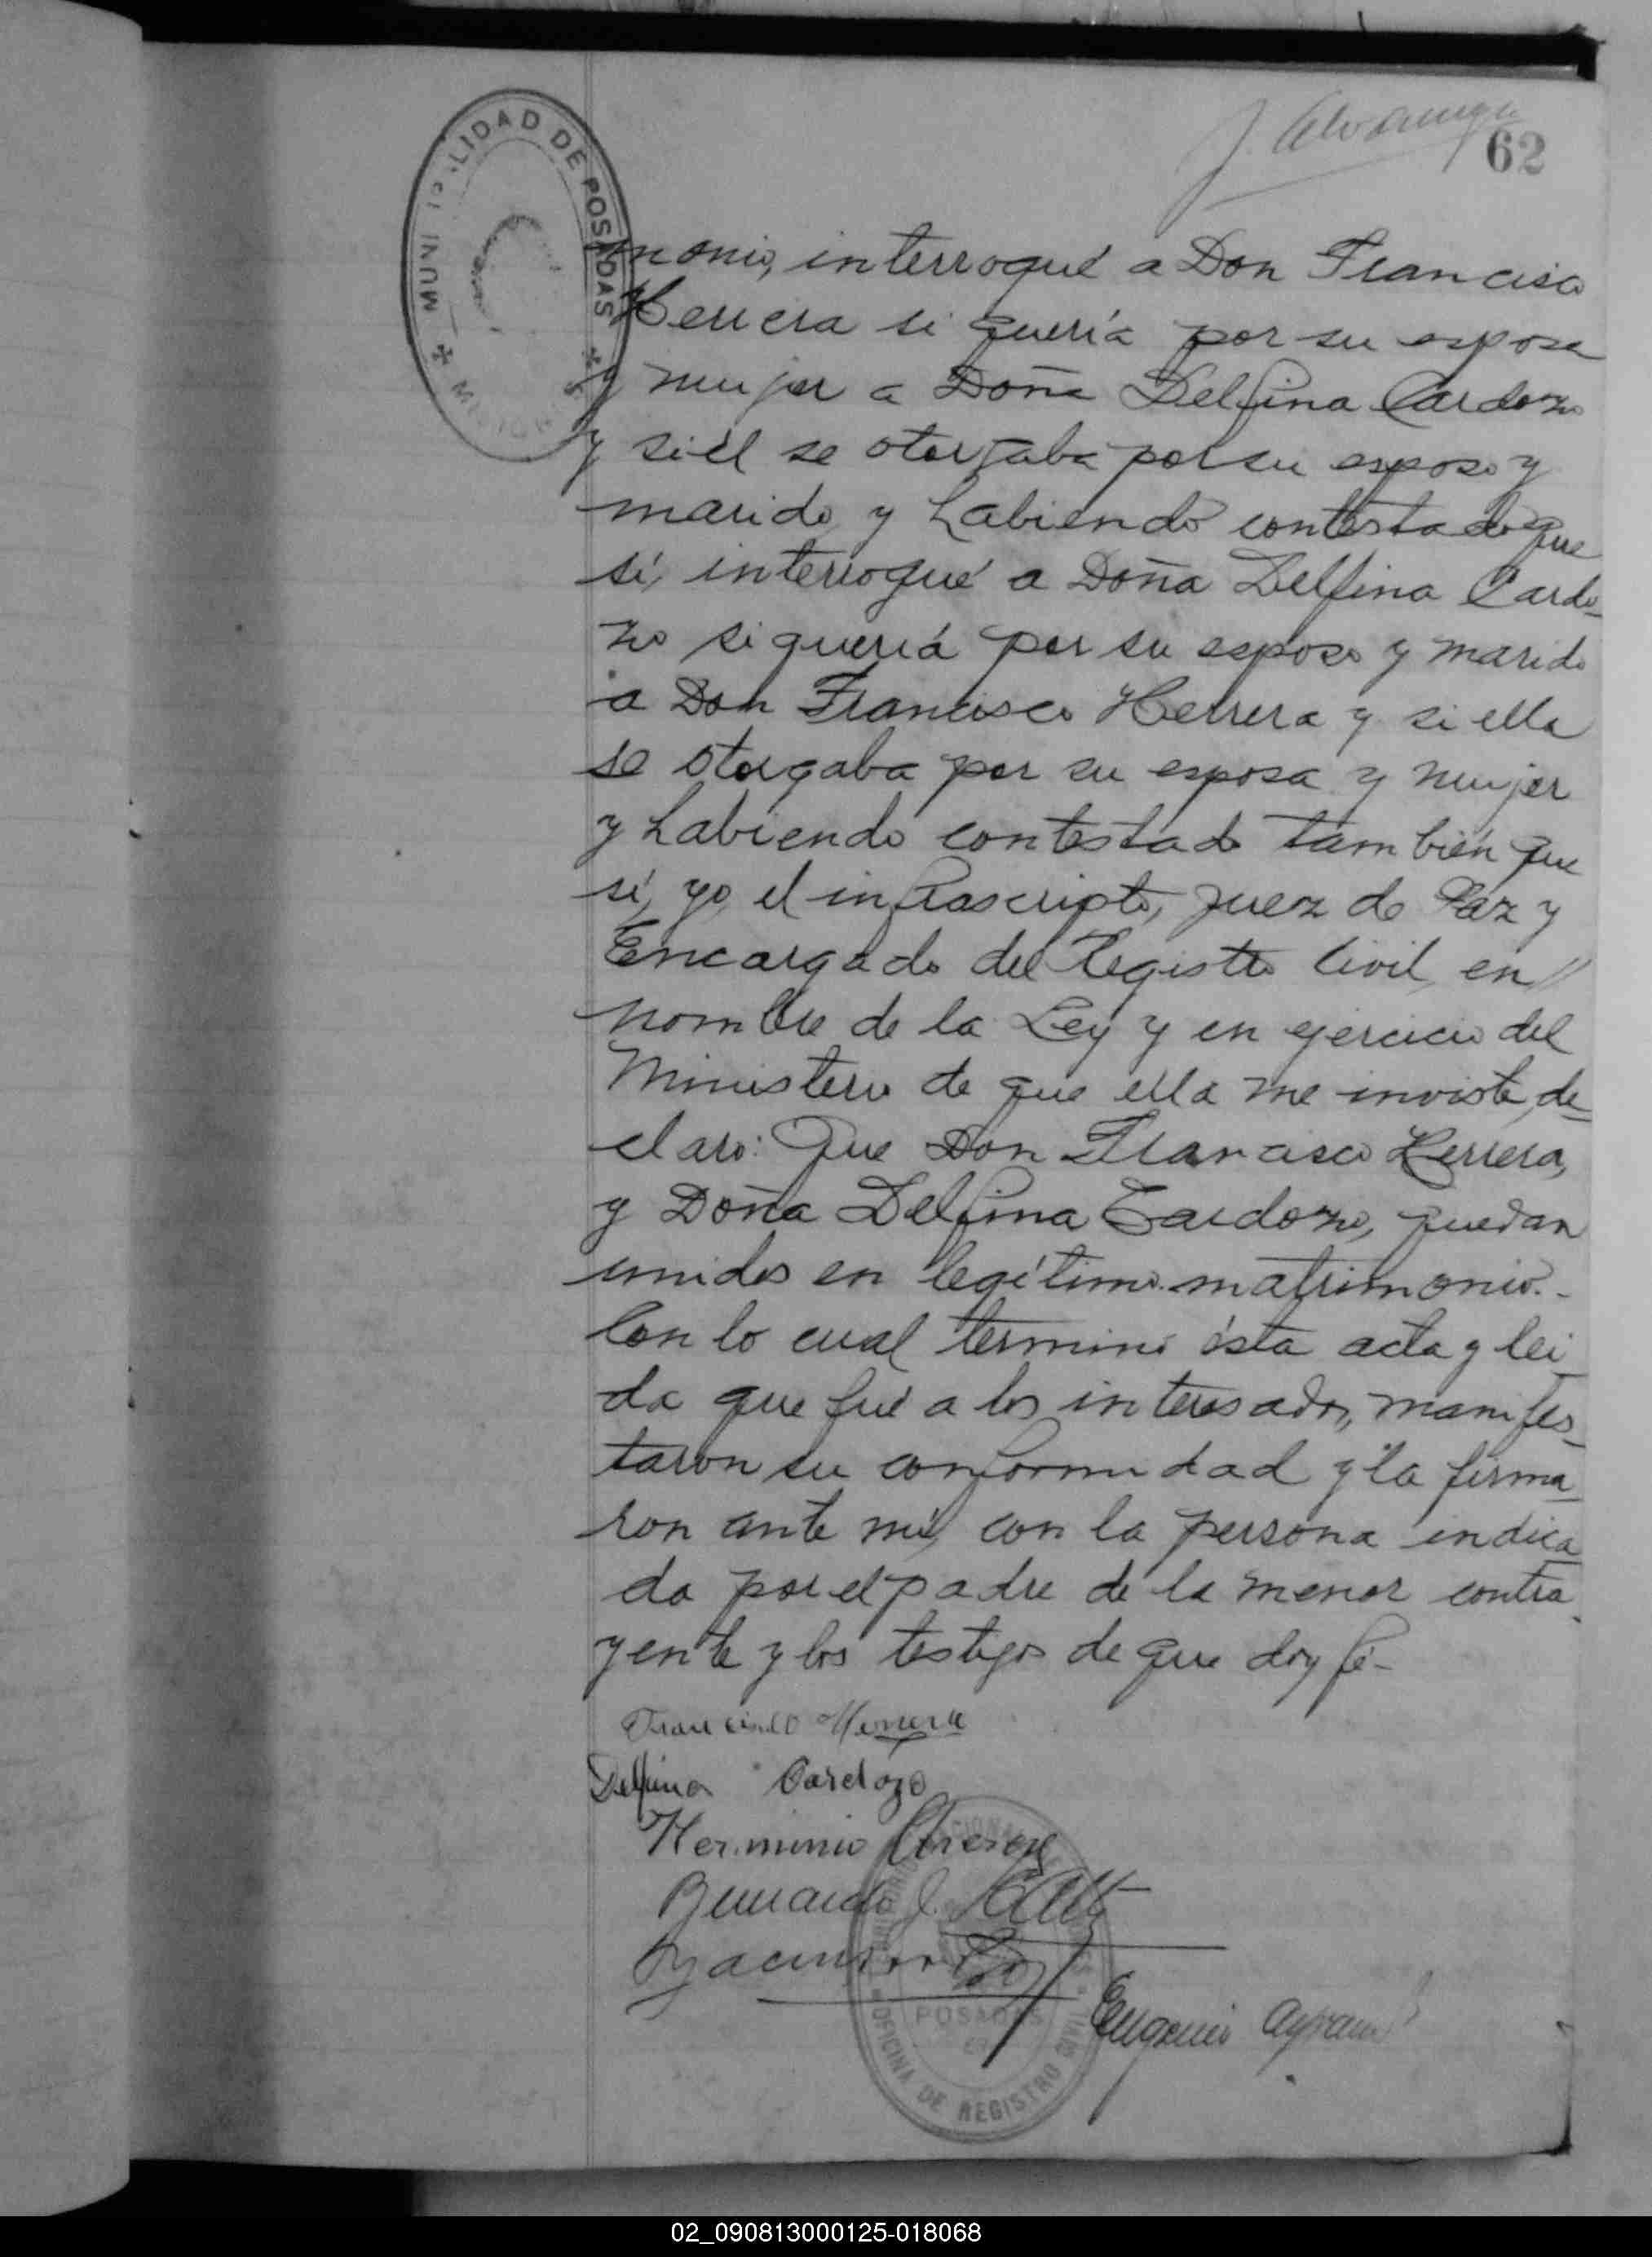 MUNICIPALIDAD DE POSADAS
MISIONES
62
monio, interrogué a Don Francisco
Herrera si quería por su esposa
y mujer a Doña Delfina Cardozo
y si él se otorgaba por su esposo y
marido y habiendo contestado que
sí, interrogué a Doña Delfina Cardo-
zo si quería por su esposo y marido
a Don Francisco Herrera y si ella
se otorgaba por su esposa y mujer
y habiendo contestado también que
sí, yo, el infrascripto, Juez de Paz y
Encargado del Registro Civil, en //
nombre de la Ley y en ejercicio del
Ministerio de que ella me inviste, de-
claro: Que Don Francisco Herrera,
y Doña Delfina Cardozo, quedan
unidos en legítimo matrimonio.-
Con lo cual terminó ésta acta y lei-
da que fué a los interesados, manifes-
taron su conformidad y la firma-
ron ante mí, con la persona indica-
da por el padre de la menor contra-
yente y los testigos de que doy fé-
Francisco Herrera
Delfina Cardozo
Herminio
Bernardo J.
Eugenio
POSADAS
OFICINA DE REGISTRO CIVIL
02_090813000125-018068